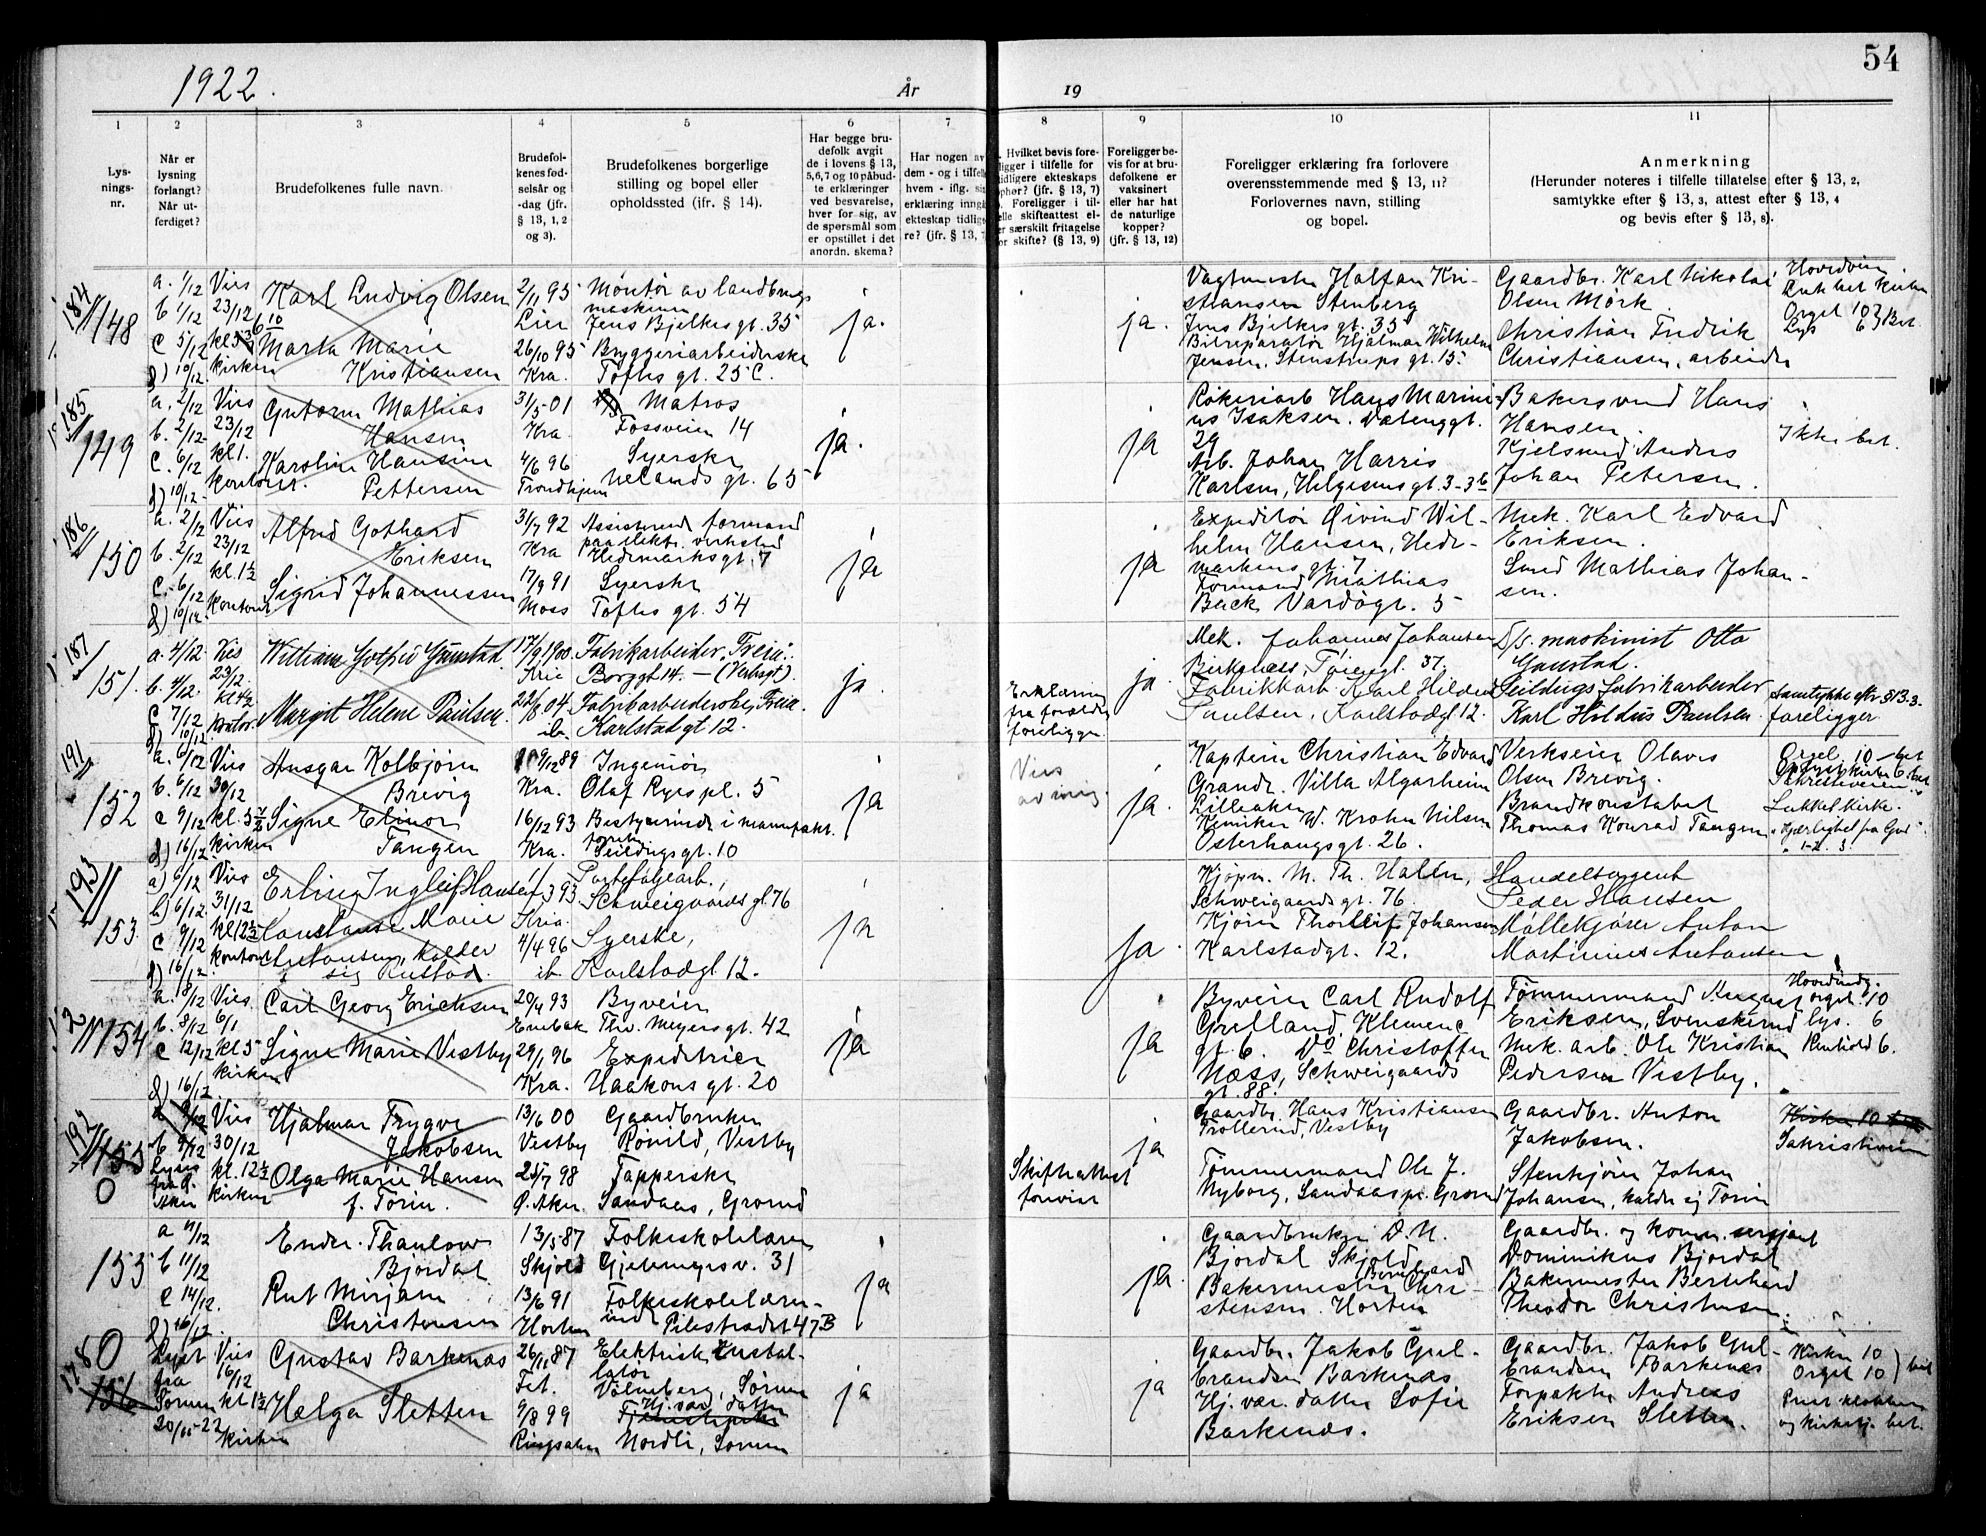 54
1922.
År
19
1
2
3
4
5
6
7
8
9
10
11
Lys-
nings-
nr.
Når er
lysning
forlangt?
Når ut-
ferdiget?
Brudefolkenes fulle navn.
Brudefol-
kenes fød-
selsår og
-dag (jfr.
§ 13, 1, 2
og 3).
Brudefolkenes borgerlige
stilling og bopel eller
opholdssted (jfr. § 14).
Har begge bru-
defolk avgit
de i lovens § 13,
5,6,7 og 10 påbud-
te erklæringer
ved besvarelse,
hver for sig, av
de spørsmål som
er opstillet i det
anordn. skema?
Har nogen av
dem - og i tilfelle
hvem - iflg. sin
erklæring inngått
ekteskap tidlige-
re? (jfr. § 13, 7
Hvilket bevis fore-
ligger i tilfelle for
tidligere ekteskaps
ophør? (jfr. § 13, 7)
Foreligger i til-
elle skifteattest el-
er særskilt fritagelse
or skifte? (§ 13, 9)
Foreligger be-
vis for at bru-
defolkene er
vaksinert
eller har hat
de naturlige
kopper?
(jfr. § 13, 12)
Foreligger erklæring fra forlovere
overensstemmende med § 13, 11?
Forlovernes navn, stilling
og bopel.
Anmerkning
(Herunder noteres i tilfelle tillatelse efter § 13, 2,
samtykke efter § 13, 3, attest efter § 13, 4
og bevis efter § 13, 8).
184
148
a. 1/12
b 1/12
c 5/12
d) 10/12
Vies
23/12
kirken
Karl Ludvig Olsen
Marta Marie
Kristiansen
2/11 95
Lier
26/10 95
Kra.
Montør av landbrugs
maskiner
Jens Bjelkes gt. 35
Bryggeriarbeiderske
Toftes gt. 25 C.
ja.
ja.
Vagtmester Halfan Kri-
stiansen Stenberg
Jens Bjelkes gt. 35
Bilreparatør Hjalmar Wilhelm
Jensen, Stenstrups gt. 15
Gaardbr. Karl Nikolai
Olsen Mørk
Christian Fredrik
Christiansen, arbeider
Orgel 10
Lys 6
Bet.
185
149
a. 2/12
b. 2/12
c. 6/12
d) 10/12
Vies
23/12
kl 1.
kontoret.
Gutorm Mathias
Hansen
Karoline Hansine
Pettersen
31/5-01
Kra.
4/6 96
Trondhjem
Matros
Fossveien 14
Syerske
Nelands gt. 65
ja.
ja
Røkeriarb Hans Marini-
us Isaksen. Vætenggt.
29
Arb. Johan Harris
Karlsen, Helgesens gt. 3-3b
Bakersvend Hans
Hansen.
Kjelsmed Anders
Johan Petersen.
Ikke bet.
186
150
a. 2/12
b. 2/12
c. 6/12
d) 10/12
Vies
23/12
kl. 1½
kontoret
Alfred Gothard
Eriksen
Sigrid Johannessen
31/7 92
Kra
17/9 91
Moss
Assisterende formand
paa elektr. verksted
Hedemarksgt. 7
Syerske
Toftes gt. 54
ja
ja
Expeditør Øivind Wil-
helm Hansen, Hede-
markens gt. 7
Formand Mathias
Beck Vardøgt. 5
Mek. Karl Edvard
Eriksen.
Smed Mathias Johan-
sen.
187
151.
a. 4/12
b. 4/12.
c 7/12
d) 10/12
Vies
23/12.
kl 4½
kontor.
William Gotfred Gunstad
Margit Helene Paulsen.
17/9 1900
Kria
22/8 04
ib.
Fabrikarbeider „Freia„
Borggt 14. — (Verksgt).
Fabrikarbeiderske, Freia
Karlstadgt 12.
ja.
Erklæring
fra forældre
foreligger
ja.
Mek. Johannes Johansen
Berkenæss, Tøiengt. 37.
Fabrikkarb Karl Hildus
Paulsen, Karlstadgt 12.
D/s. maskinist Otto
Gunstad.
Seildugsfabrikarbeider
Karl Hildus Paulsen.
Samtykke efter § 13-3-
foreligger
191
152
a. 6/12
b. 6/12
c 9/12
d) 16/12
Vies
30/12
kirken
Ansgar Kolbjørn
Brevig
Signe Elinor
Tangen
9/12 89
Kra.
16/12 93
Kra.
Ingeniør
Olaf Ryes pl. 5
Bestyrerinde i manufakt.
Seildugs gt. 10
ja
Vies
ja.
Kaptein Christian Edvard
Grande. Villa Algarheim
Lilleaker
Kemiker W. Krohn Nilsen
Osterhausgt. 26.
Verkseier Olaus
Olsen Brevig.
Brandkonstabel
Thomas Konrad Tangen
Orgel 10 – bet
Sakristieien
Lukket kirke.
„Kjærlighet fra Gud„
1-2. 3.
193
153.
a) 6/12
b) 6/12
c 9/12
d) 16/12
Vies
31/12
kl 12½
kontoret
Erling Ingleif Hansen
Constanse Marie
Antonsen, kalder
sig Rustad.
1/3 93
Kria.
4/4 96
ib
Portefølgearb.,
Schweigaards gt 76
Syerske,
Karlstadgt 12.
ja
ja.
Kjøpm. M. Th. Hallen,
Schweigaards gt. 76.
Kjører Thorleif Johansen
Karlstadgt. 12.
Handelsagent
Peder Hansen
Møllekjører Anton
Martinius Antonsen
154
a. 8/12
b. 8/12
c 12/12
d) 16/12
Vies.
6/1
kl 5
kirken
Carl Georg Ericksen
Signe Marie Vestby
20/4 93
Enebak
29/1 96
Kra.
Byveier
Thv. Meyers gt. 42
Expeditrice
Haakons gt. 20
ja
ja
Byveier Carl Rudolf
Grefland, Klemenc
gt. 6. Do Christoffer
Næss, Schweigaards
gt. 88.
Tømmermand August
Eriksen, Svenskerud
Mek. arb. Ole Kristian
Pedersen Vestby.
Hovedindg.
orgel. 10
lys. 6
Renhold 6.
192
155
0
a 9/12
b 9/12
Lyses
fra Ø.
Aker
Vies
30/12
kl. 12½
kirken
Hjalmar Trygve
Jakobsen
Olga Marie Hansen
f. Torin.
13/6 00
Vestby
25/7 98
Ø. Aker.
Gaardbruker
Rønild, Vestby
Tapperske
Sandaas, Grorud
Skifteattest
forevist
ja
Gaardbr. Hans Kristiansen
Trollerud, Vestby
Tømmermand Ole J.
Nyborg, Sandaas pr. Grorud
Gaardbr. Anton
Jakobsen.
Stenkjører Johan
Johansen, kalder sig Torin
Kirken 10
Sakristieien
155
a 11/12
b 11/12
c 14/12.
d) 16/12.
Ender Thanlow
Bjordal
Rut Mirjam
Christensen
13/5-87
Skjold
13/6 91
Horten
Folkeskolelærer
Gjetemyrsv. 31
Folkeskolelærer-
inde Pilestrædet 47 B
ja
ja.
Gaardbruker D. N.
Bjordal Skjold
Bakermester Berenhard Chri-
stensen. Horten
Gaardbr. og komm. sersjant
Dominikus Bjordal
Bakermester Bernhard
Theodor Christensen.
178
0
156
Lyst
fra
Sørum
20/11-22
Vies
16/12
kl 1½
kirken
Gustav Barkenæs
Helga Sletten
26/11 87
Fet.
9/8 99
Ringsaker
Elektrisk Instal-
latør
Volmeberg, Sørum
Hj. vær. datter
Nordli, Sørum
ja
ja
Gaardbr. Jakob Gul-
brandsen Barkenæs
Hj. vær. datter Sofie
Barkenæs.
Gaardbr. Jakob Gul-
brandsen Barkenæs
Forpakter Andreas
Eriksen Sletten.
Kirken 10
Orgel 10
bet
og kirketj. bet.